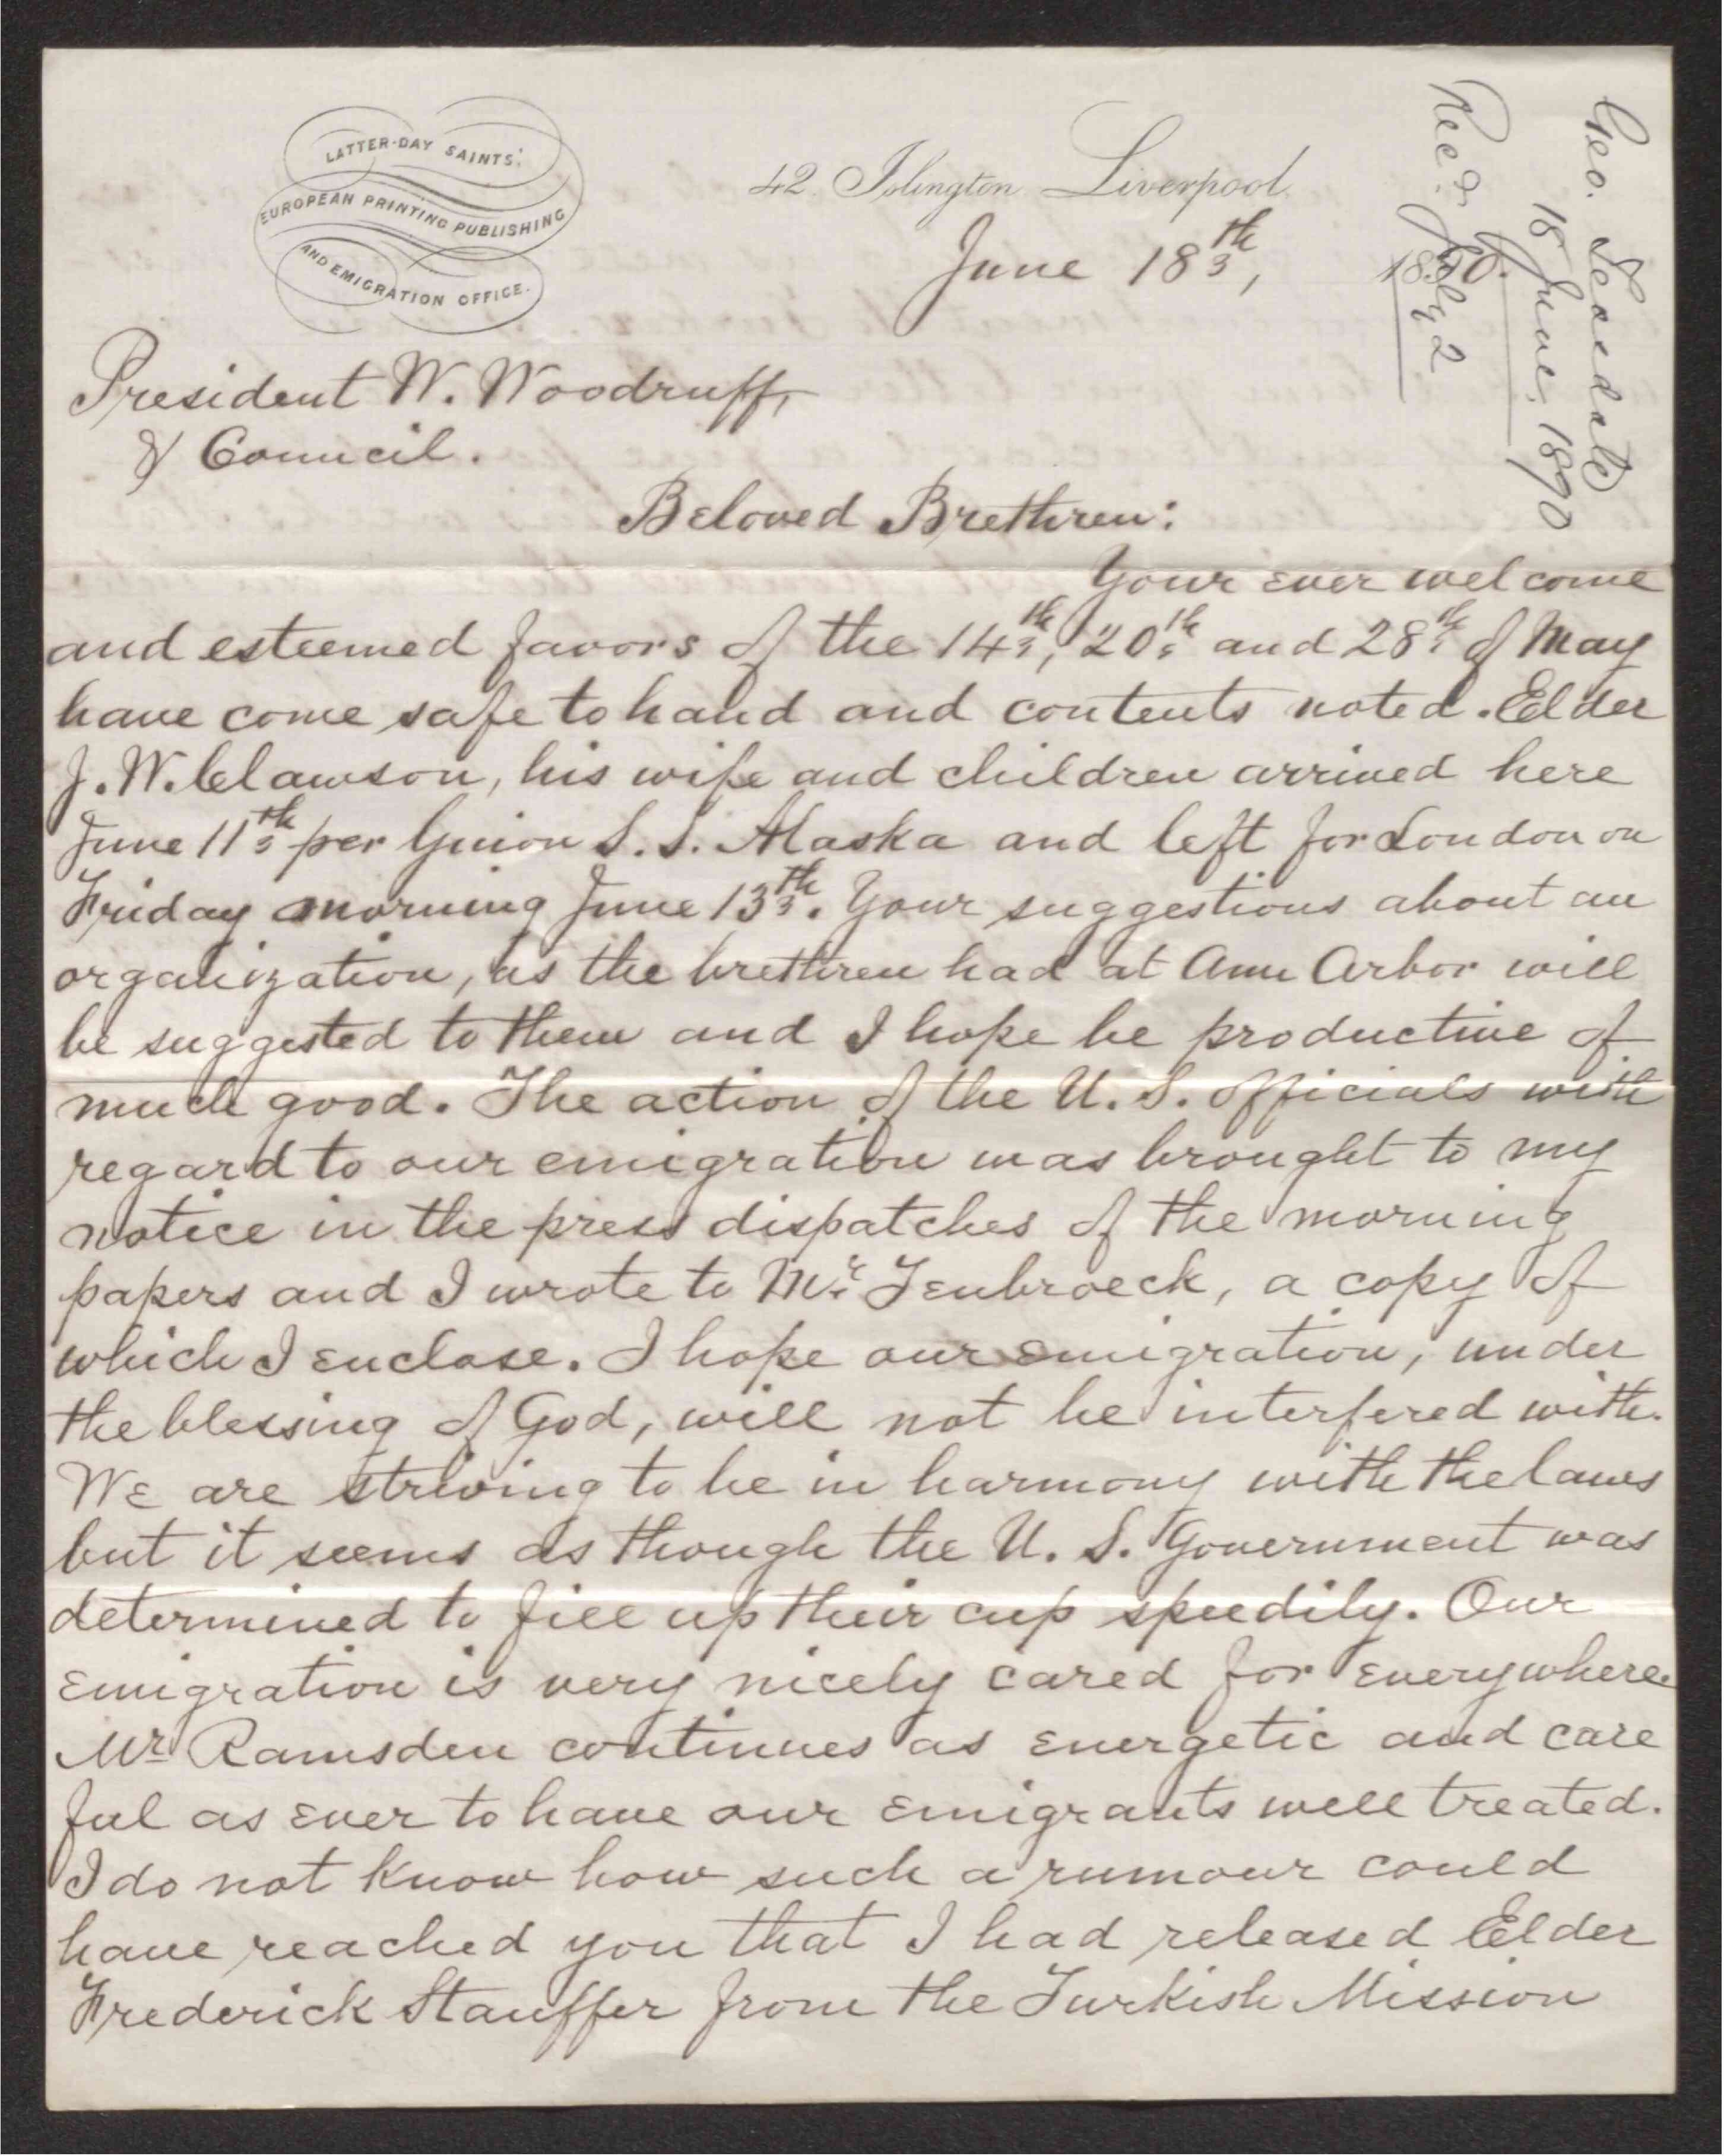 LATTER-DAY SAINTS'
EUROPEAN PRINTING PUBLISHING
AND EMIGRATION OFFICE.
42 Islington Liverpool
June 18th, 1890.
Geo. Teasdale
18 June, 1890
Rec'd July 2
President W. Woodruff,
& Council.
Beloved Brethren:
Your ever welcome
and esteemed favors of the 14th, 20th and 28th of May
have come safe to hand and contents noted. Elder
J. W. Clawson, his wife and children arrived here
June 11th per Guion S. S. Alaska and left for London on
Friday morning June 13th. Your suggestions about an
organization, as the brethren had at Ann Arbor will
be suggested to them and I hope be productive of
much good. The action of the U. S. officials with
regard to our emigration was brought to my
notice in the press dispatches of the morning
papers and I wrote to Mr. Tenbroeck, a copy of
which I enclose. I hope our emigration, under
the blessing of God, will not be interfered with.
We are striving to be in harmony with the laws
but it seems as though the U. S. Government was
determined to fill up their cup speedily. Our
emigration is very nicely cared for everywhere.
Mr Ramsden continues as energetic and care
ful as ever to have our emigrants well treated.
I do not know how such a rumour could
have reached you that I had released Elder
Frederick Stauffer from the Turkish Mission